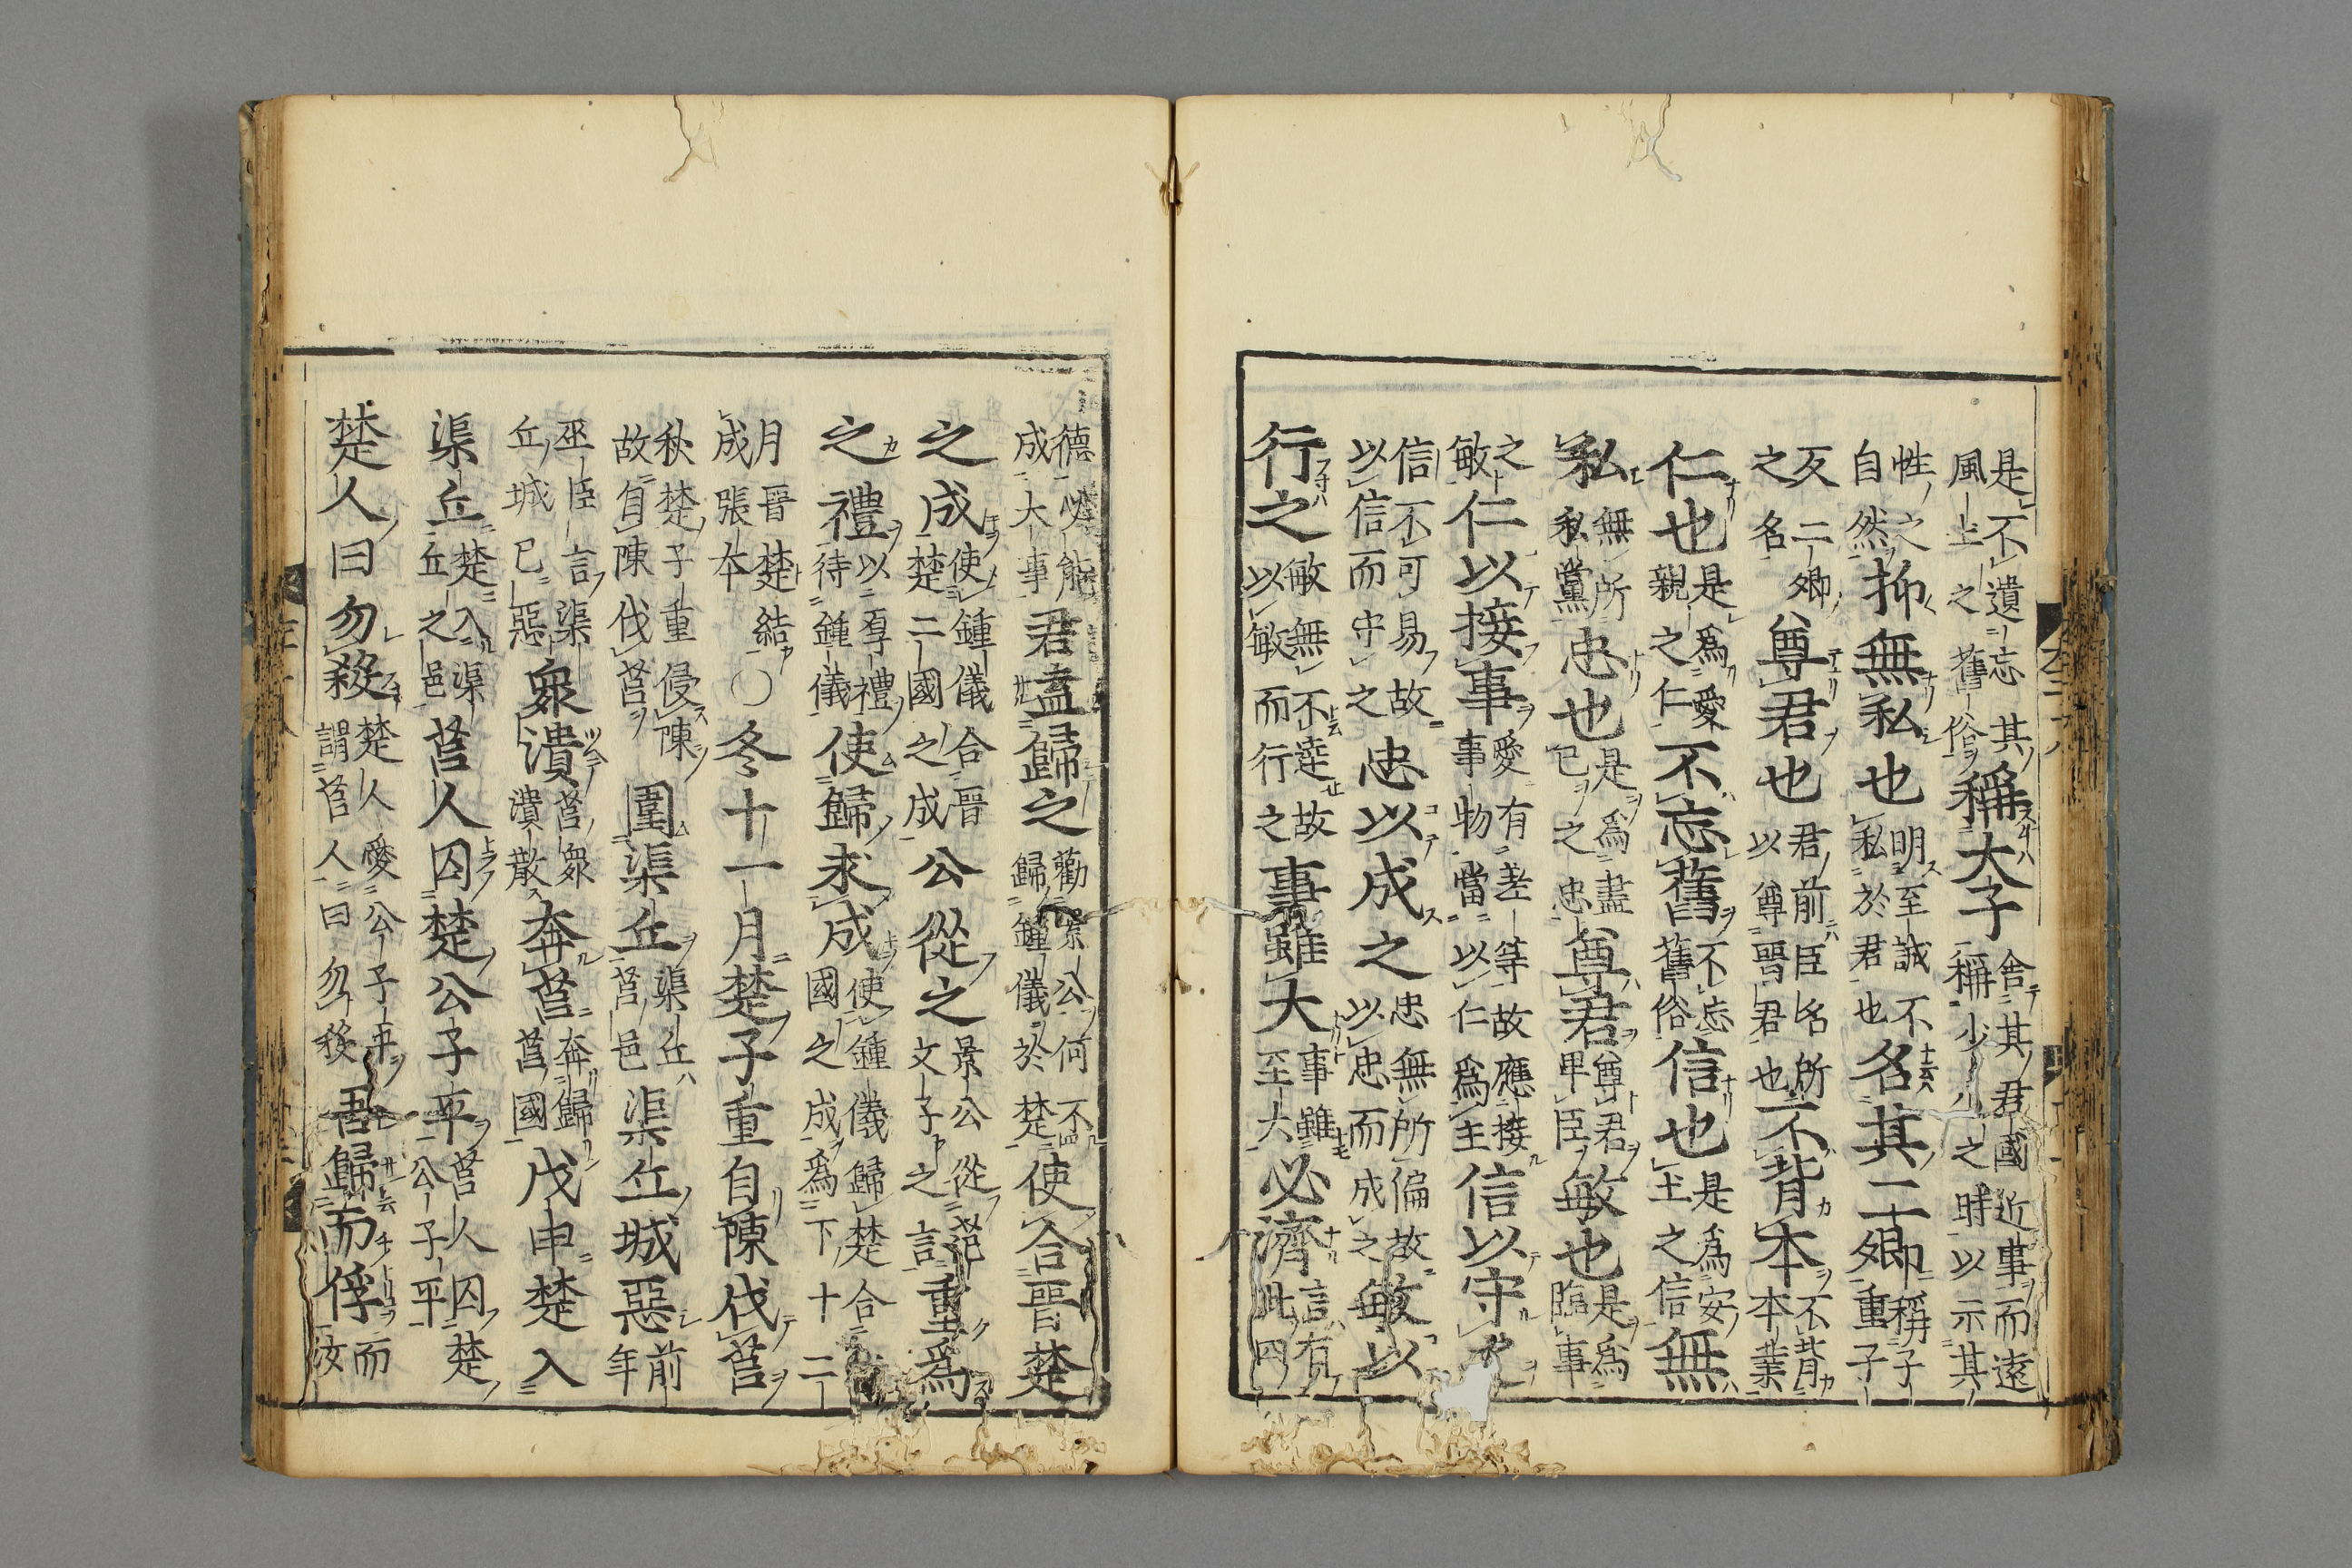 是不遺忘其風上之舊俗稱大子舍其君國近事而遠稱少小之時以示其
性之自然抑無私也明至誠不私於君也名其二卿稱子重子
反二卿之名尊君也君前臣名所以尊晉君也不背本不背本業
仁也是為愛親之仁不忘舊不忘舊俗信也是為安土之信無
私無所私黨忠也是為盡己之忠尊君尊君卑臣敏也是為臨事
之敏仁以接事愛有差等故應接事物當以仁為主信以守之
信不可易故以信而守之忠以成之忠無所偏故以忠而成之敏以
行之敏無不達故以敏而行之事雖大事雖至大必濟言有此四
德必能成大事君盍歸之勸景公何不歸鍾儀於楚使合晉楚
之成使鍾儀合晉楚二國之成公從之景公從范文子之言重為
之禮以厚禮待鍾儀使歸求成使鍾儀歸楚合國之成為下十二
月晉楚結成張本○冬十一月楚子重自陳伐莒
秋楚子重侵陳故自陳伐莒圍渠丘渠丘莒邑渠丘城惡前年
巫臣言渠丘城已惡衆潰莒衆潰散奔莒奔歸莒國戊申楚入
渠丘楚入渠丘之邑莒人囚楚公子平莒人囚楚公子平
楚人曰勿殺楚人愛公子平謂莒人曰勿殺吾歸而俘而汝